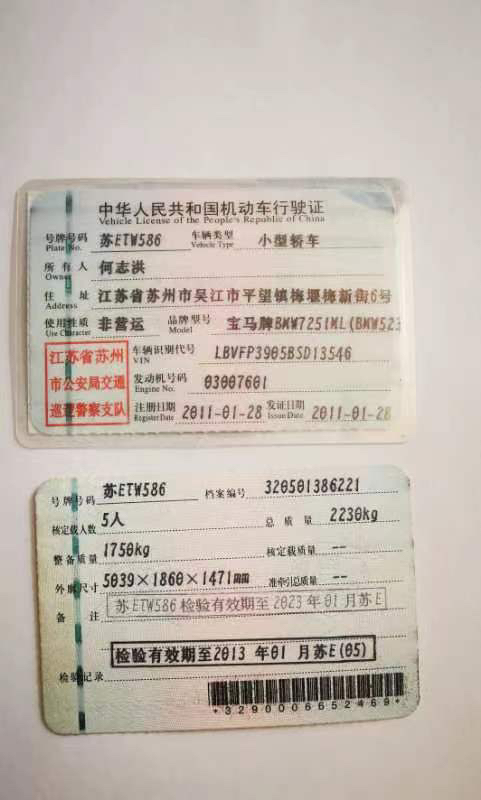 中华人民共和国机动车行驶证
Vehicle License of the People's Republic of China
号牌号码 苏ETW586 车辆类型 小型轿车
Plate No. Vehicle Type
所有人 何志洪
Owner
住址 江苏省苏州市吴江市平望镇梅堰梅新街6号
Address
使用性质 非营运 品牌型号 宝马牌BMW7251ML(BMW523
Use Character Model
江苏省苏州
市公安局交通
巡逻警察支队
车辆识别代号 LBVFP3905BSD13546
VIN
发动机号码 03007601
Engine No.
注册日期 2011-01-28 发证日期 2011-01-28
Register Date Issue Date
号牌号码 苏ETW586 档案编号 320501386221
核定载人数 5人 总质量 2230kg
整备质量 1750kg 核定载质量 --
外廓尺寸 5039×1860×1471mm 准牵引总质量 --
备注 苏ETW586检验有效期至2023年01月苏E
检验有效期至2013年01月苏E(05)
检验记录
*3290006652469*